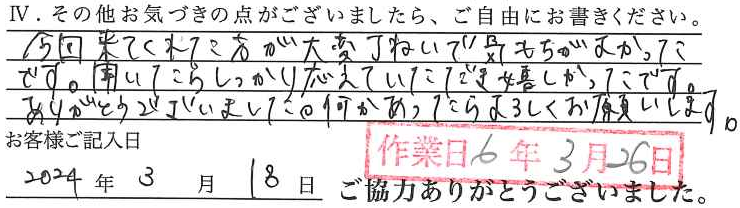 Ⅳ．その他お気づきの点がございましたら、ご自由にお書きください。
今回来てくれてた方が大変丁ねいで気もちがよかった
です。聞いてこらしっかり応えていただき嬉しかったです。
ありがとうございました。何かあったらよろしくお願いします。
お客様ご記入日
作業日6年3月26日
2024年3月18日
ご協力ありがとうございました。